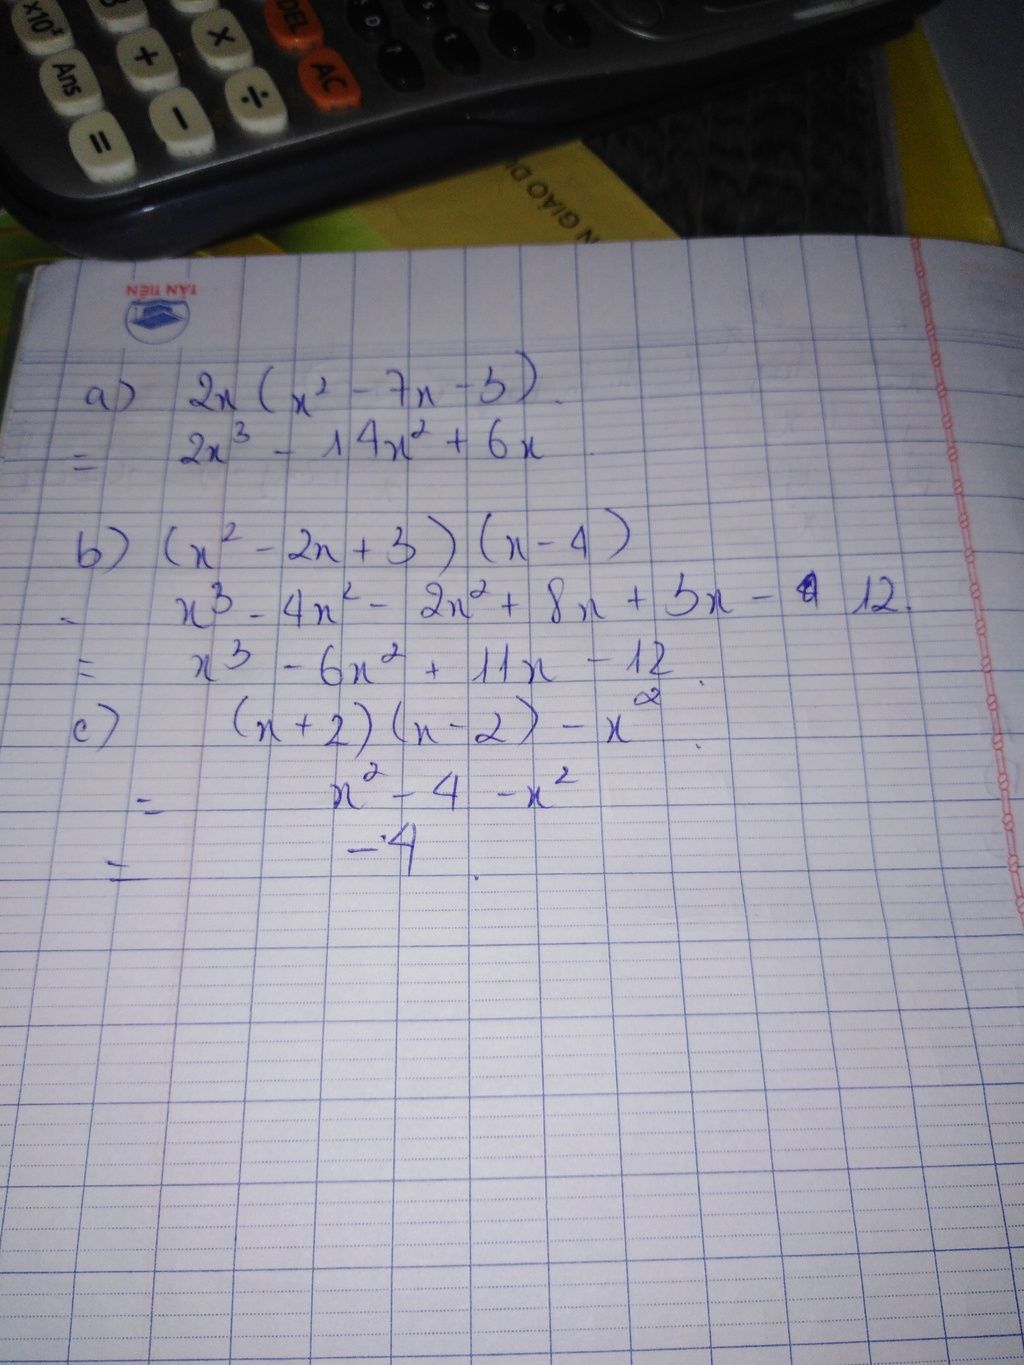 ×10ˣ
DEL
+
×
Ans
AC
=
−
÷
N GIÁO D
TÂN TIẾN
a) 2x (x² - 7x - 3).
= 2x³ - 14x² + 6x
b) (x² - 2x + 3) (x - 4)
- x³ - 4x² - 2x² + 8x + 3x - 12.
= x³ - 6x² + 11x - 12.
c) (x + 2) (x - 2) - x².
= x² - 4 - x²
= -4.